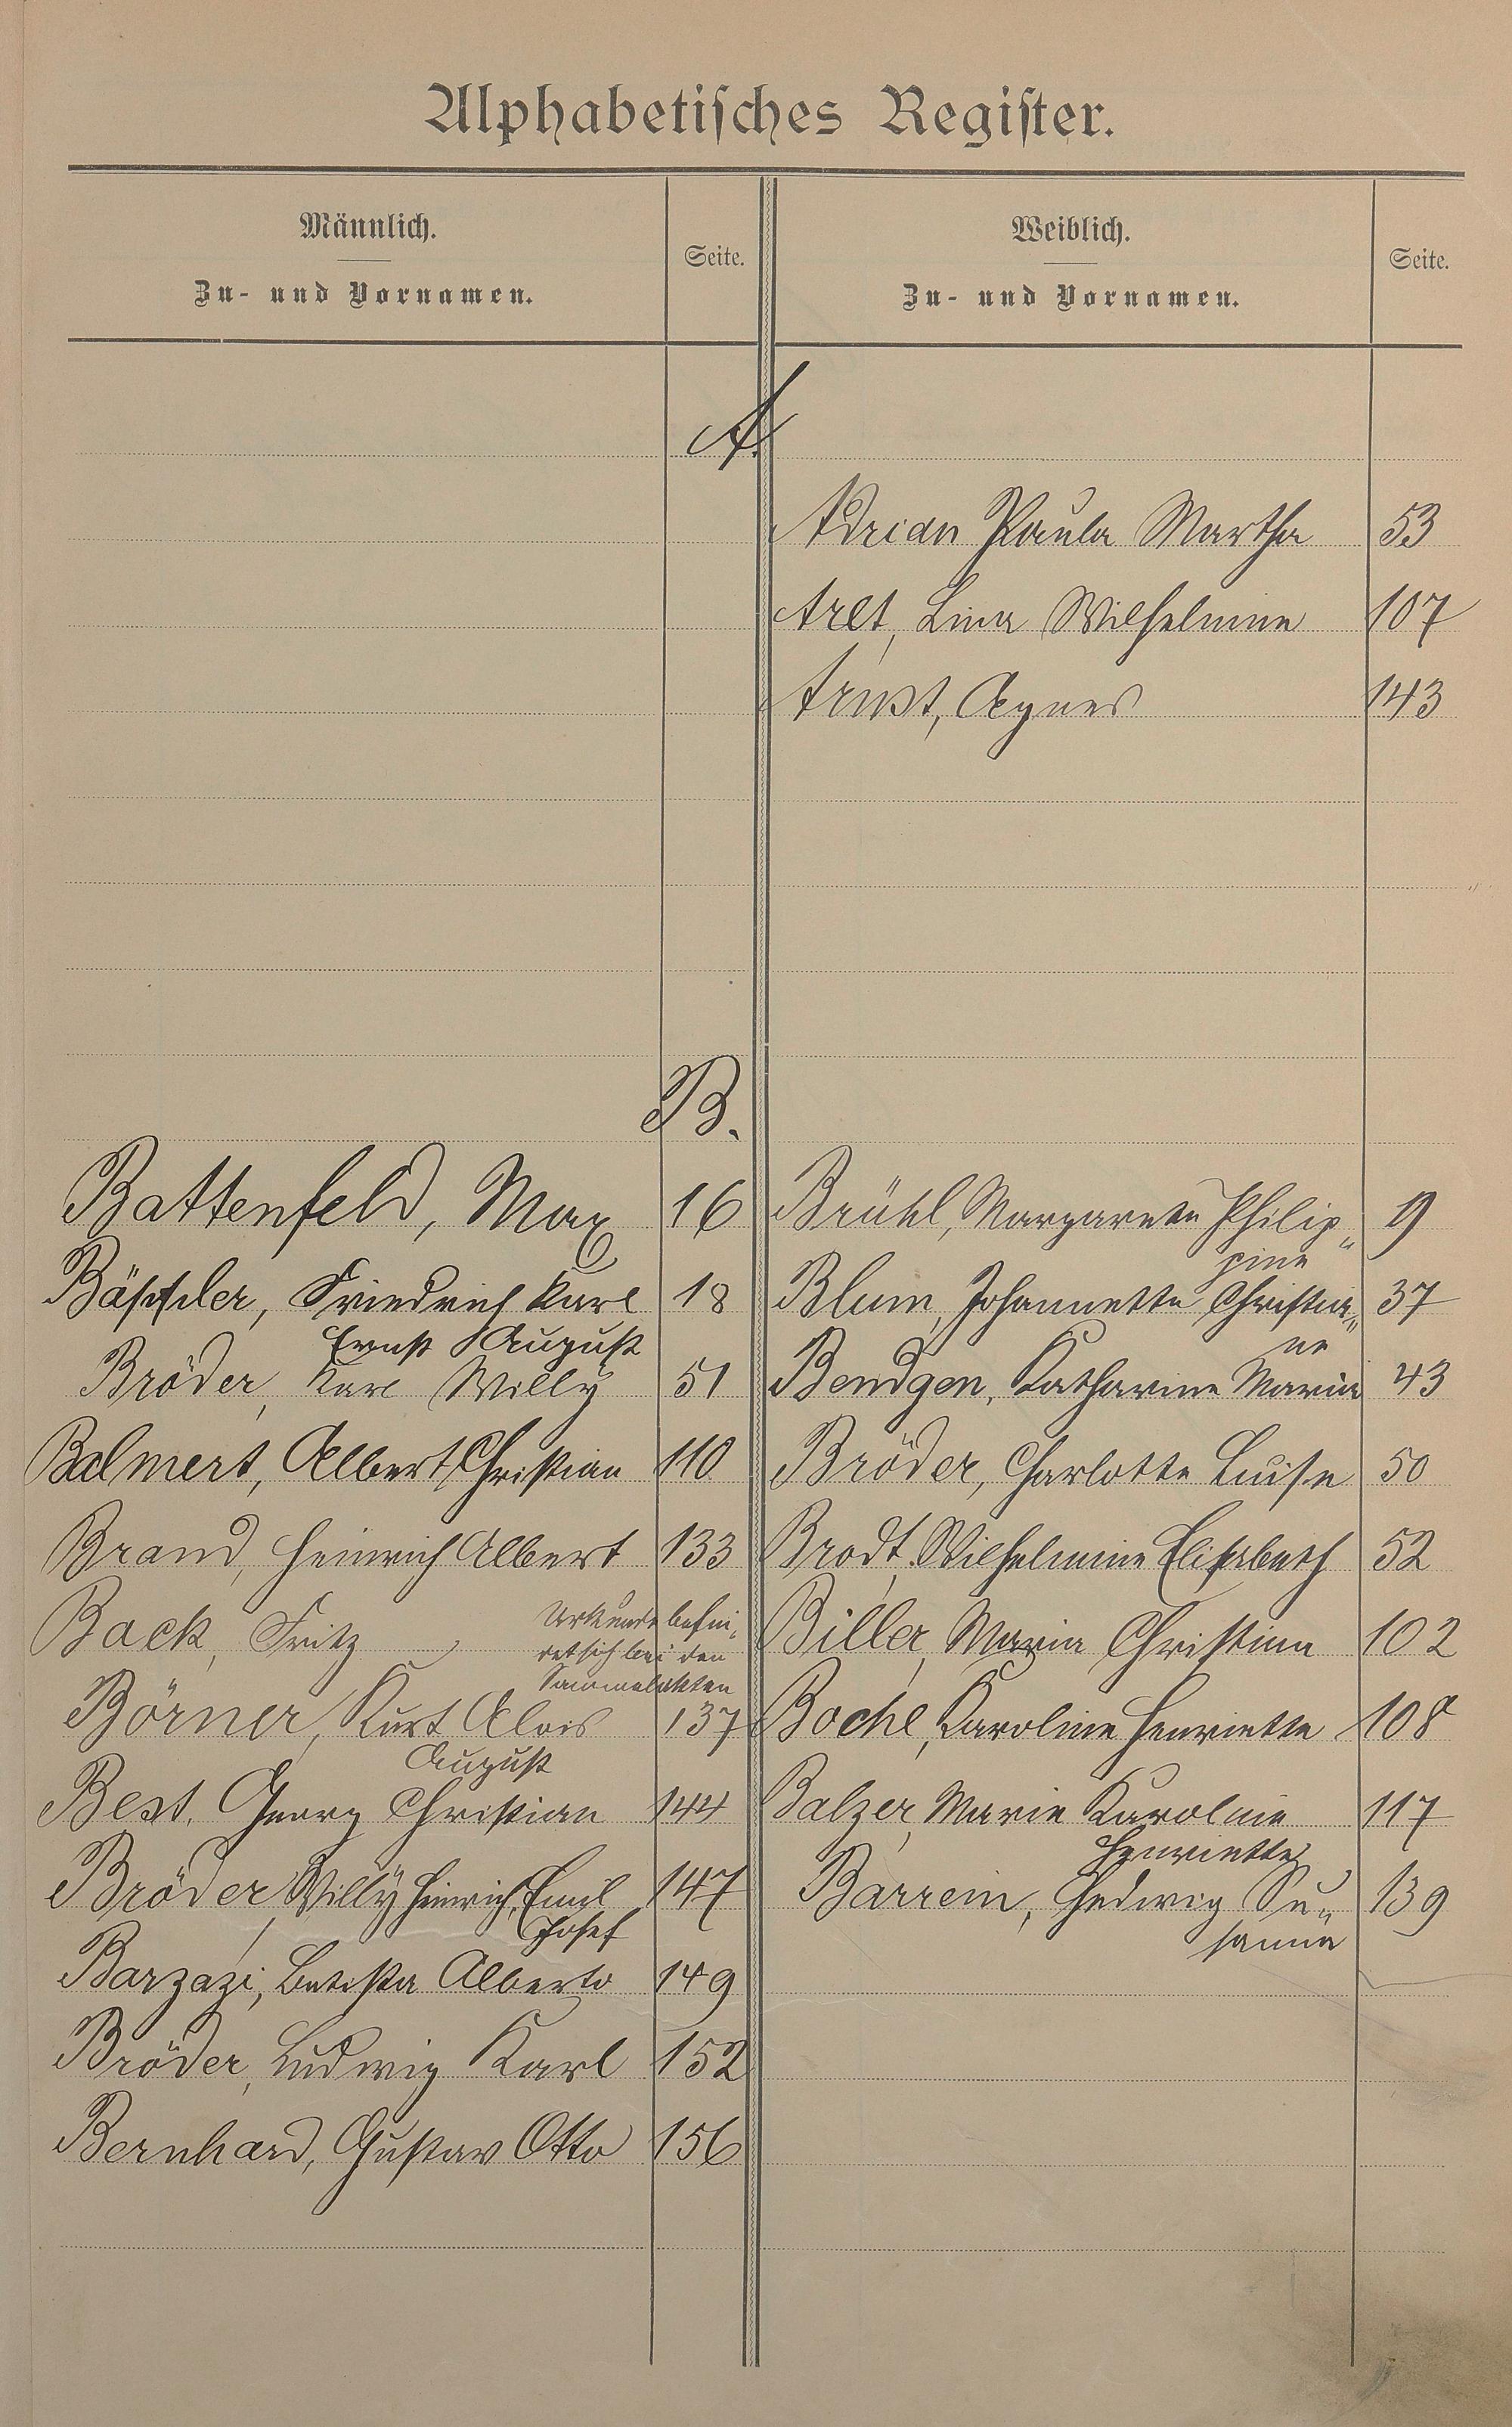 Alphabetisches Register.
Männlich.
Zu- und Vornamen.
Seite.
Weiblich.
Zu- und Vornamen.
Seite.
A.
Adrian Paula Martha 53
Arlt, Lina Wilhelmine 107
Arnst, Agnes 143
B.
Battenfeld, Max 16
Bäppler, Friedrich Karl 18
Ernst August
Bröder, Karl Willy 51
Belmert, Albert Christian 110
Brand, Heinrich Albert 133
Back, Fritz Urkunde befin-
det sich bei den
Sammelakten
Börner, Kurt Alois 137
August
Best, Georg Christian 144
Bröder Willy Heinrich Emil 147
Josef
Barzazi, Batista Alberto 149
Bröder, Ludwig Karl 152
Bernhard, Gustav Otto 156
Brühl, Margarete Philip- 9
pine
Blum, Johannette Christia- 37
ne
Bendgen, Katharine Maria 43
Bröder, Charlotte Luise 50
Brodt, Wilhelmine Elisabeth 52
Biller, Maria Christina 102
Boche, Karoline Henriette 108
Balzer, Marie Karoline 117
Henriette
Barrein, Hedwig Su- 139
sanna